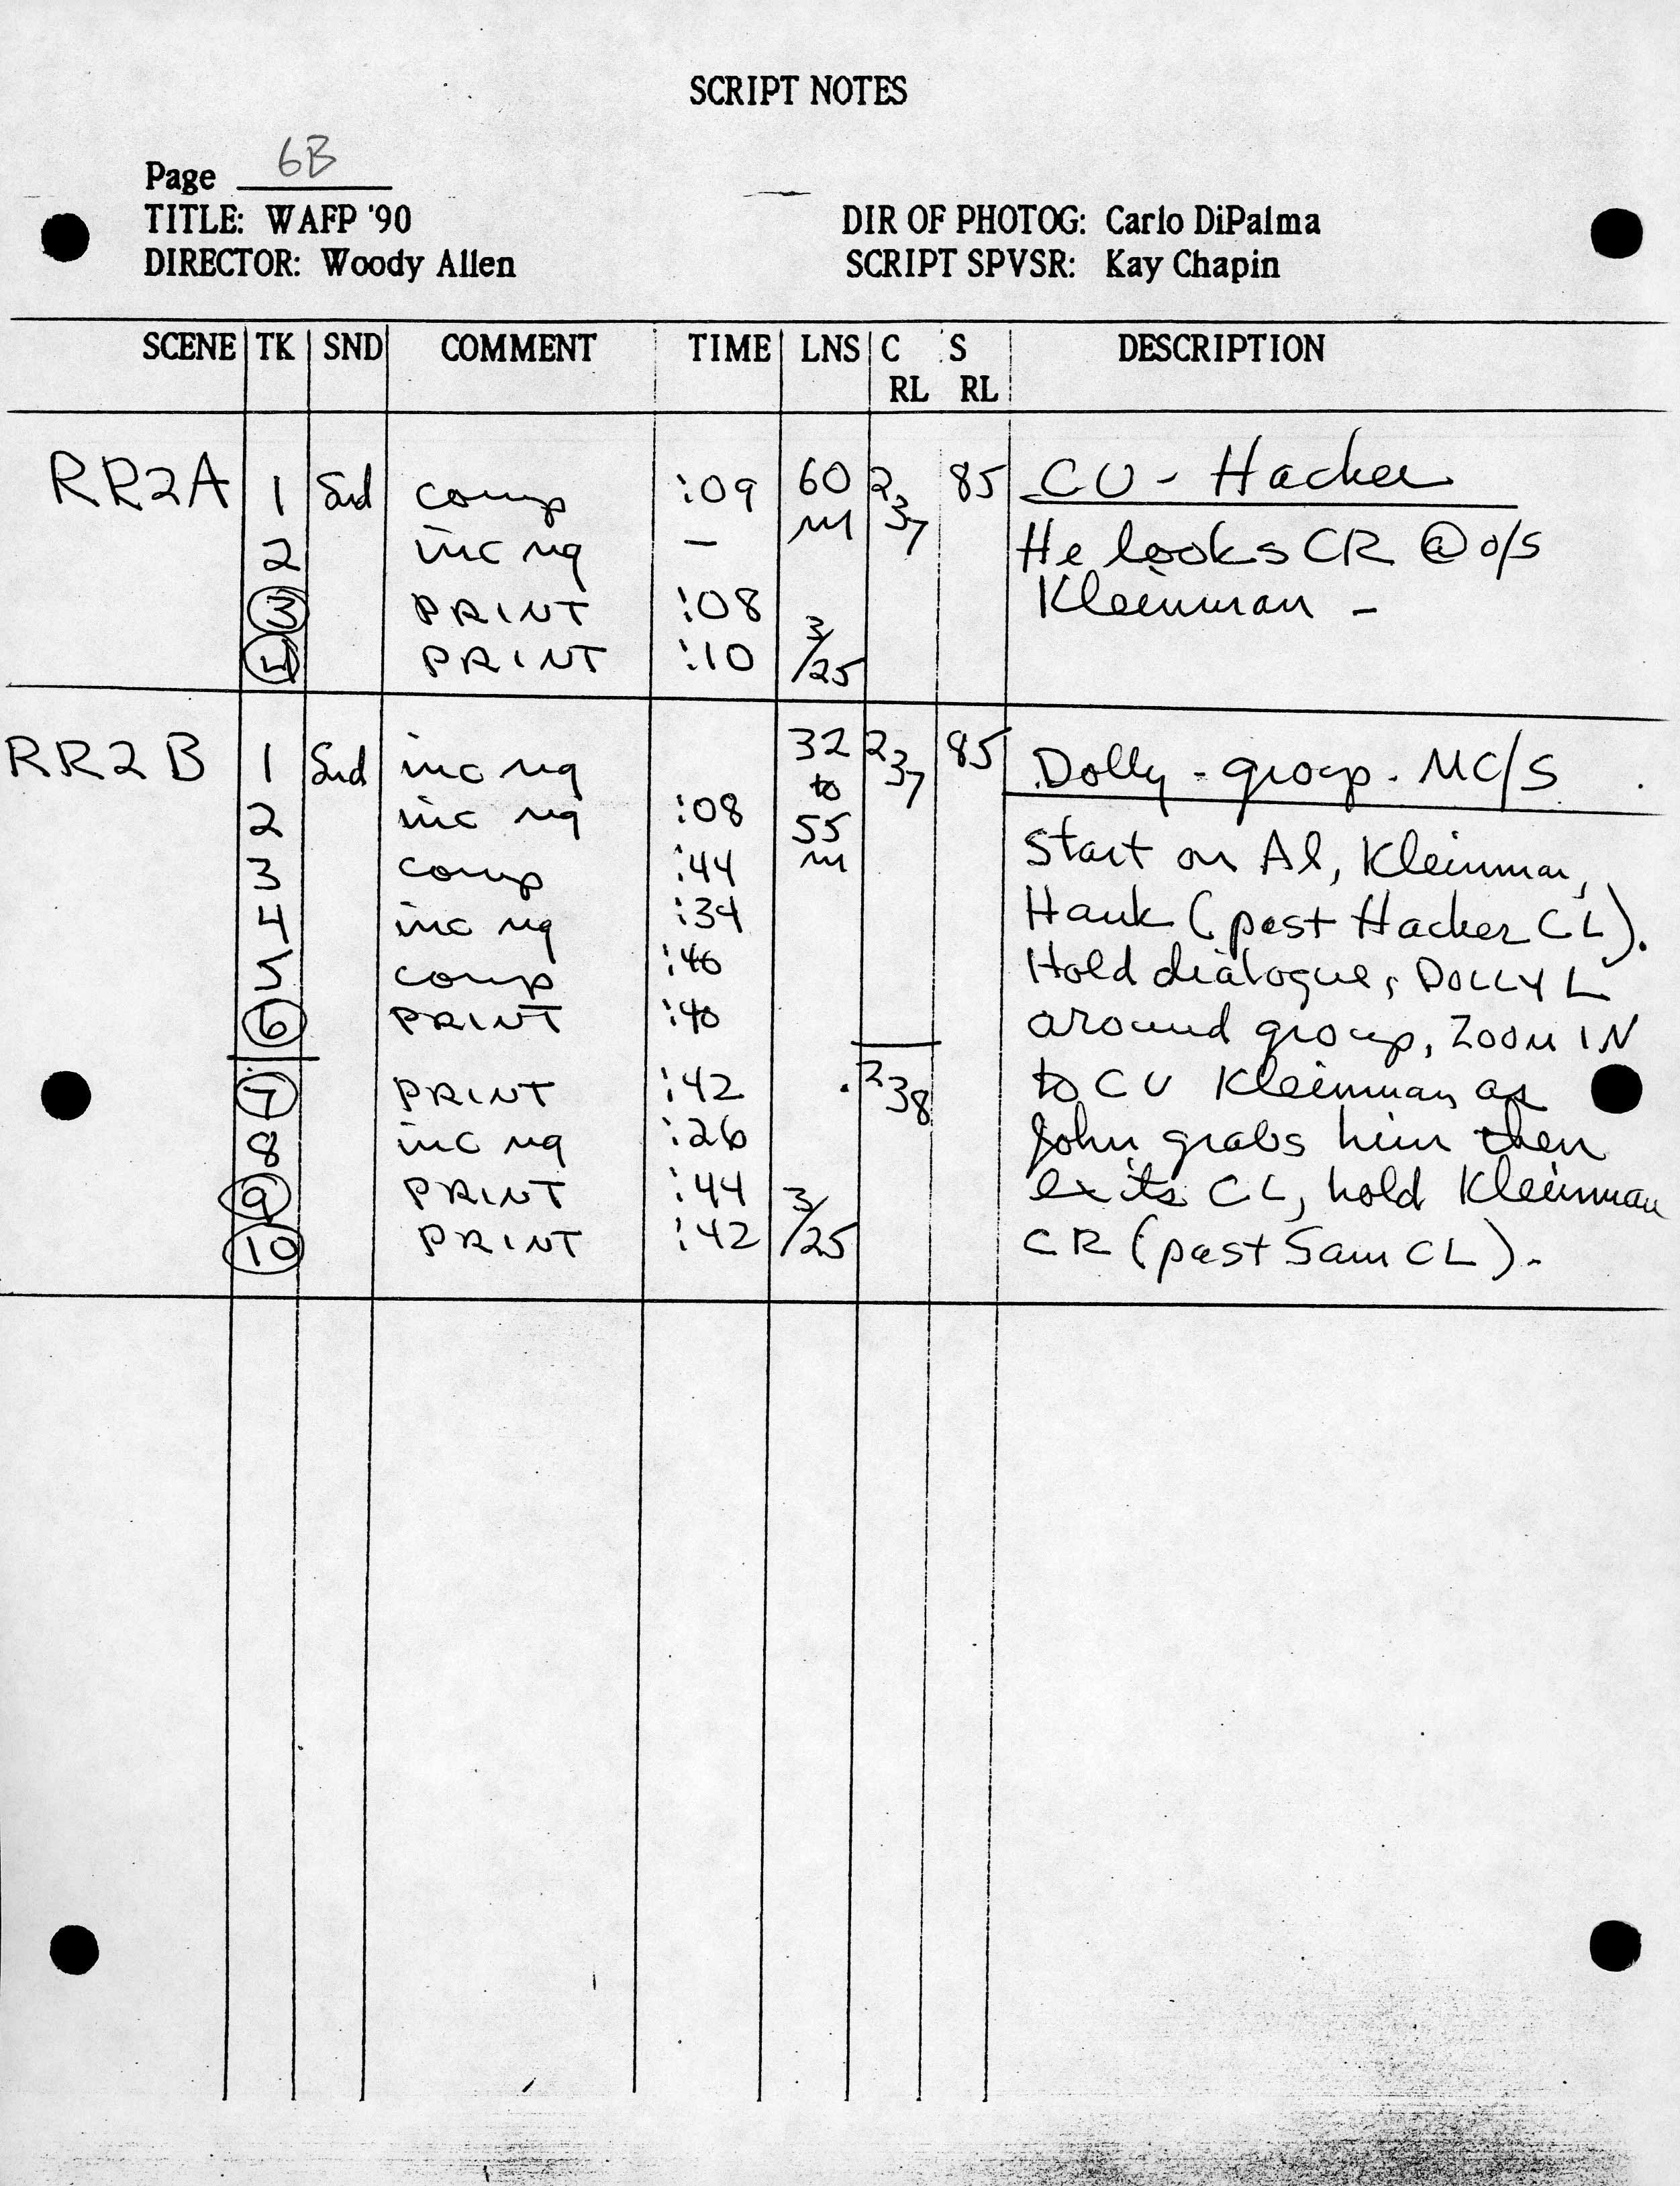 SCRIPT NOTES
Page 6B
TITLE: WAFP '90 DIR OF PHOTOG: Carlo DiPalma
DIRECTOR: Woody Allen SCRIPT SPVSR: Kay Chapin
SCENE TK SND COMMENT TIME LNS C S DESCRIPTION
RL RL
RR2A 1 Snd comp :09 60 237 85 CU - Hacker
2 inc ng – m He looks CR @ o/s
3 PRINT :08 Kleinman -
4 PRINT :10 3/25
RR2B 1 Snd inc ng 32 237 85 Dolly - group - MC/S
2 inc ng :08 to
3 comp :44 55 m Start on Al, Kleinman,
4 inc ng :34 Hank (past Hacker CL).
5 comp :46 Hold dialogue, DOLLY L
6 PRINT :40 around group, ZOOM IN
7 PRINT :42 238 to CU Kleinman as
8 inc ng :26 John grabs him then
9 PRINT :44 exits CL, hold Kleinman
10 PRINT :42 3/25 CR (past Sam CL).